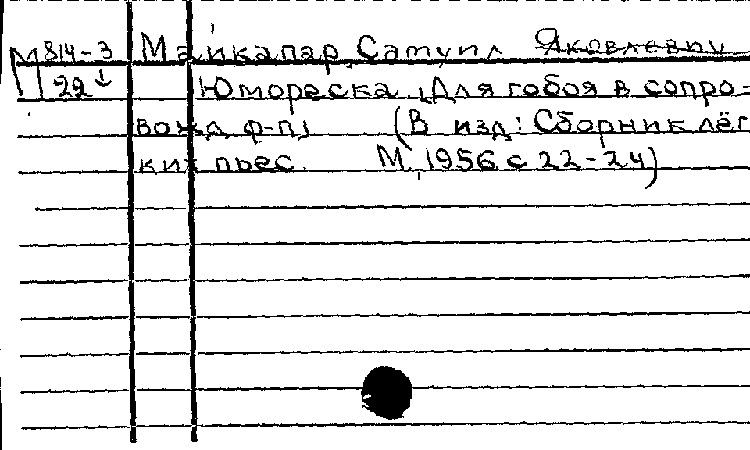 М 814-3 Майкапар, Самуил Яковлевич
22 Юмореска. [Для гобоя в сопро-
вожд ф-п] (В изд: Сборник лёг
ких пьес. М., 1956 с 22-24)